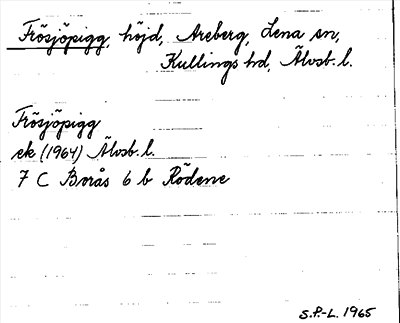 Frösjöpigg, höjd, Areberg, Lena sn,
Kullings hd, Älvsb. l.
Frösjöpigg
ek (1964) Älvsb. l.
7 C Borås 6 b Rödene
S.P.-L. 1965